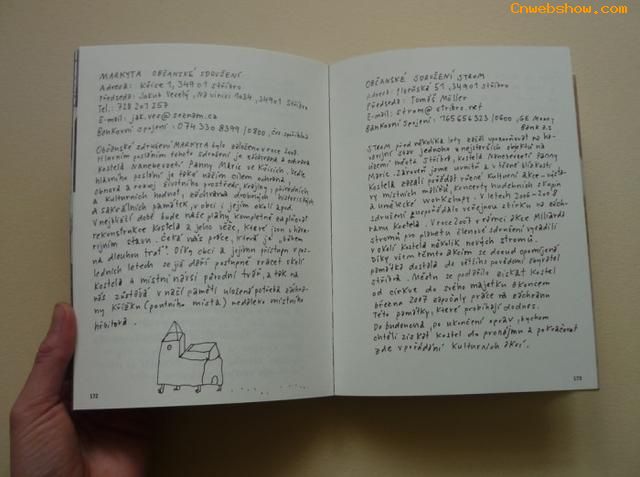 Cnwebshow.com
MARKYTA OBČANSKÉ SDRUŽENÍ
Adresa: Kšice 1, 349 01 Stříbro
Předseda: Jakub Veselý, Na vinici 1034, 349 01 Stříbro
Tel.: 728 201 257
E-mail: jak.ves@seznam.cz
Bankovní spojení: 074 330 8399 / 0800, ČS spořitelna
Občanské sdružení MARKYTA bylo založeno v roce
Hlavním posláním tohoto sdružení je záchrana a obnova
Kostela Nanebevzetí Panny Marie ve Kšicích. Vedle
hlavního poslání je také naším cílem ochrana,
obnova a rozvoj životního prostředí, krajiny, přírodních
a kulturních hodnot, záchrana drobných historických
a sakrálních památek, v obci i jejím okolí apod.
V nejbližší době bude naše plány kompletně zaplňovat
rekonstrukce kostela a jeho věže, které jsou v hava-
rijním stavu. Čeká nás práce, která je „během
na dlouhou trať". Díky obci a jejímu přístupu v pos-
ledních letech se jí daří postupně vracet okolí
kostela a místní návsi původní tvář, a tak na
nás zůstává v naší paměti uložená potřeba záchra-
ny křížku (poutního místa) nedaleko místního
hřbitova.
172
OBČANSKÉ SDRUŽENÍ STROM
Adresa: Plzeňská 51, 349 01 Stříbro
Předseda: Tomáš Müller
E-mail: strom@stribro.net
Bankovní spojení: 165656323 / 0600, GE Money
Bank a.s
STROM před několika lety začal upozorňovat na ha-
varijní stav jednoho z nejstarších objektů na
území města Stříbra, kostela Nanebevzetí Panny
Marie. Zároveň jsme uvnitř a v těsné blízkosti
kostela začali pořádat různé kulturní akce - výsta-
vy místních malířů, koncerty hudebních skupin
a umělecké workshopy. V letech 2006-2008
sdružení uspořádalo veřejnou sbírku na zách-
ranu kostela. V roce 2007 v rámci akce Miliarda
stromů pro planetu členové sdružení vysadili
v okolí kostela několik nových stromů.
Díky všem těmto akcím se dosud opomíjená
památka dostala do většího povědomí obyvatel
Stříbra. Městu se podařilo získat kostel
od církve do svého majetku a koncem
března 2007 započaly práce na záchranu
této památky, které probíhají dodnes.
Do budoucna, po ukončení oprav, bychom
chtěli získat kostel do pronájmu a pokračovat
zde v pořádání kulturních akcí.
173